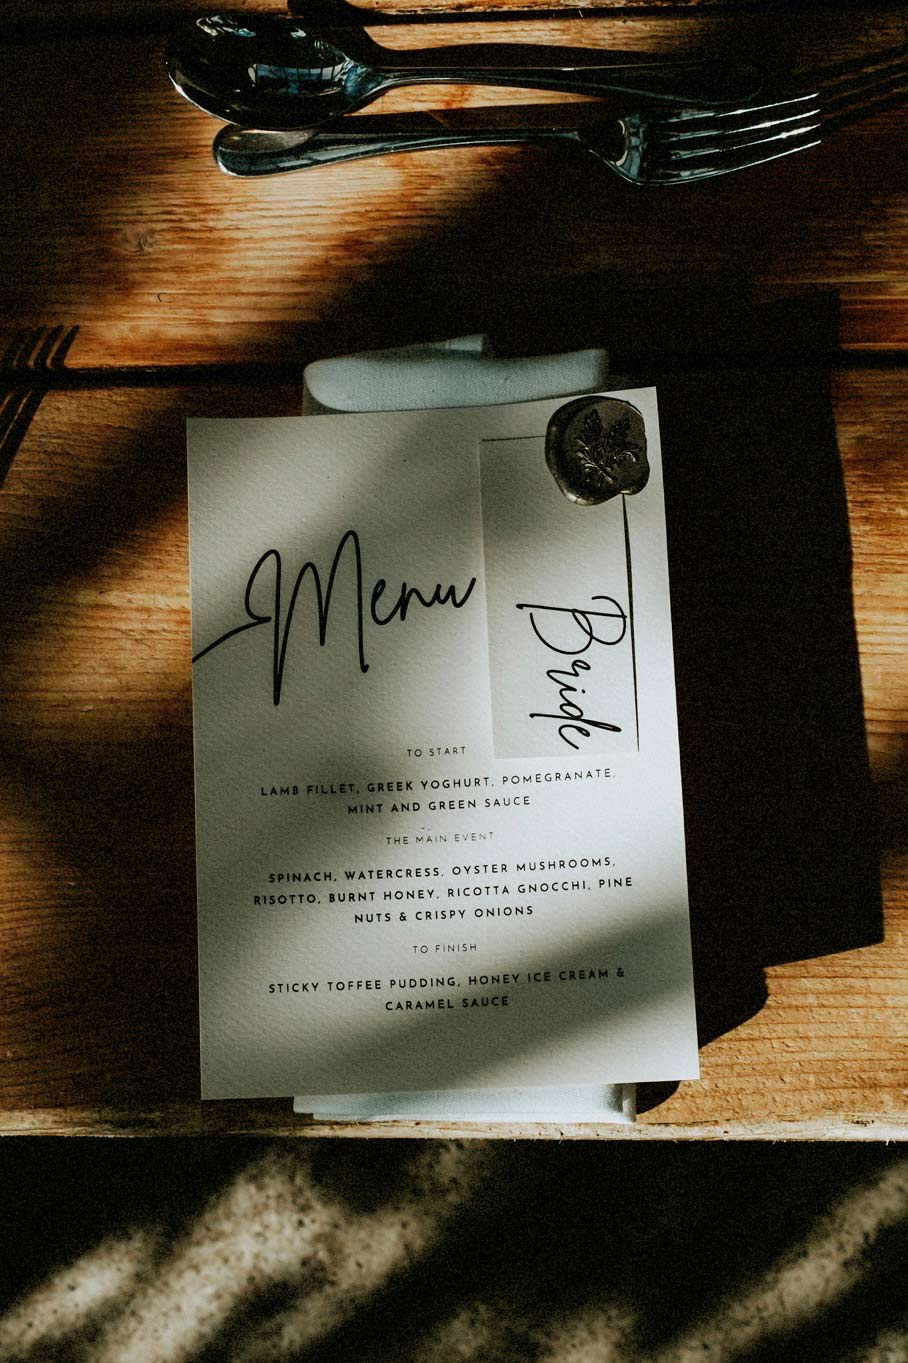 Menu
Bride
TO START
LAMB FILLET, GREEK YOGHURT, POMEGRANATE,
MINT AND GREEN SAUCE
THE MAIN EVENT
SPINACH, WATERCRESS, OYSTER MUSHROOMS,
RISOTTO, BURNT HONEY, RICOTTA GNOCCHI, PINE
NUTS & CRISPY ONIONS
TO FINISH
STICKY TOFFEE PUDDING, HONEY ICE CREAM &
CARAMEL SAUCE